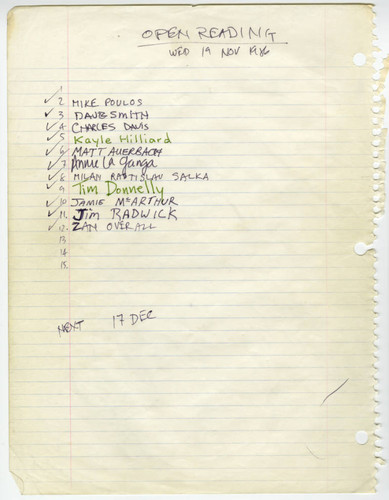 OPEN READING
WED 19 NOV 1986
1
✓ 2 MIKE POULOS
✓ 3 DAVE SMITH
✓ 4 CHARLES DAVIS
✓ 5 Kayle Hilliard
✓ 6 MATT AUERBACH
✓ 7 Annie La Ganga
✓ 8 MILAN RADTISLAV SALKA
✓ 9 Tim Donnelly
✓ 10 JAMIE McARTHUR
✓ 11. Jim RADWICK
✓ 12. ZAM OVERALL
13
14
15.
NEXT 17 DEC